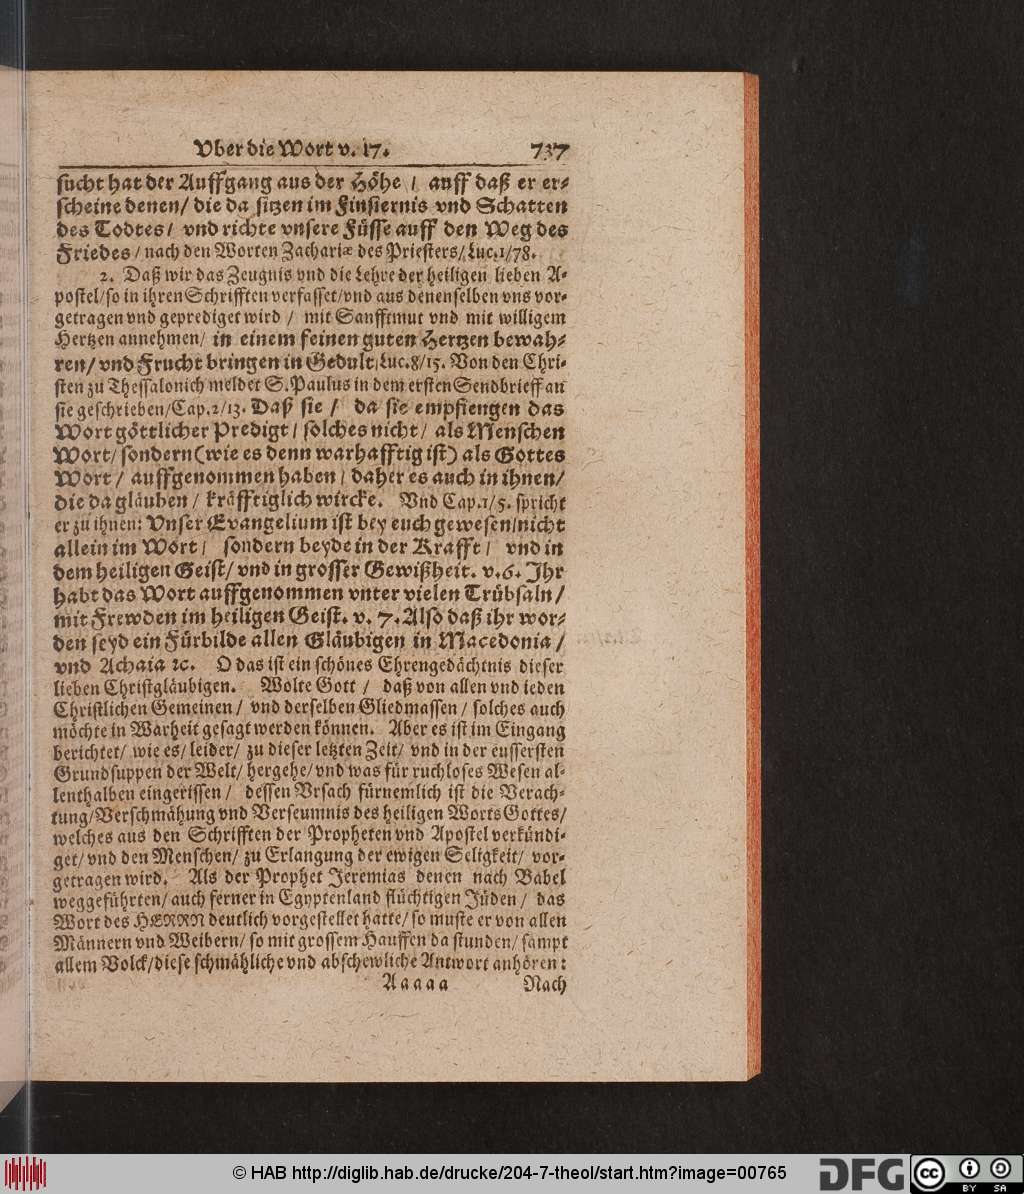 Vber die Wort v. 17. 737
sucht hat der Auffgang aus der Höhe / auff daß er er-
scheine denen/ die da sitzen im Finsternis vnd Schatten
des Todtes/ vnd richte vnsere Füsse auff den Weg des
Friedes/ nach den Worten Zachariæ des Priesters/ Luc.1/78.
2. Daß wir das Zeugnis vnd die Lehre der heiligen lieben A-
postel/so in ihren Schrifften verfasset/vnd aus denenselben vns vor-
getragen vnd geprediget wird / mit Sanfftmut vnd mit willigem
Hertzen annehmen/ in einem feinen guten Hertzen bewah-
ren/ vnd Frucht bringen in Gedult/Luc.8/15. Von den Chri-
sten zu Thessalonich meldet S. Paulus in dem ersten Sendbrieff an
sie geschrieben/Cap.2/13. Daß sie / da sie empfiengen das
Wort göttlicher Predigt/ solches nicht/ als Menschen
Wort/ sondern (wie es denn warhafftig ist) als Gottes
Wort/ auffgenommen haben/ daher es auch in ihnen/
die da gläuben/ kräfftiglich wircke. Vnd Cap.1/5. spricht
er zu ihnen: Vnser Evangelium ist bey euch gewesen/nicht
allein im Wort/ sondern beyde in der Krafft/ vnd in
dem heiligen Geist/ vnd in grosser Gewißheit. v.6. Ihr
habt das Wort auffgenommen vnter vielen Trübsaln/
mit Frewden im heiligen Geist. v. 7. Also daß ihr wor-
den seyd ein Fürbilde allen Gläubigen in Macedonia/
vnd Achaia ꝛc. O das ist ein schönes Ehrengedächtnis dieser
lieben Christgläubigen. Wolte Gott / daß von allen vnd ieden
Christlichen Gemeinen/ vnd derselben Gliedmassen/ solches auch
möchte in Warheit gesagt werden können. Aber es ist im Eingang
berichtet/ wie es/ leider/ zu dieser letzten Zeit/ vnd in der eussersten
Grundsuppen der Welt/ hergehe/ vnd was für ruchloses Wesen al-
lenthalben eingerissen/ dessen Vrsach fürnemlich ist die Verach-
tung/Verschmähung vnd Verseumnis des heiligen Worts Gottes/
welches aus den Schrifften der Propheten vnd Apostel verkündi-
get/ vnd den Menschen/ zu Erlangung der ewigen Seligkeit/ vor-
getragen wird. Als der Prophet Jeremias denen nach Babel
weggeführten/ auch ferner in Egyptenland flüchtigen Jüden/ das
Wort des HERRN deutlich vorgestellet hatte/ so muste er von allen
Männern vnd Weibern/ so mit grossem Hauffen da stunden/ sampt
allem Volck/diese schmähliche vnd abschewliche Antwort anhören:
Aaaaa Nach
© HAB http://diglib.hab.de/drucke/204-7-theol/start.htm?image=00765
DFG
cc BY SA